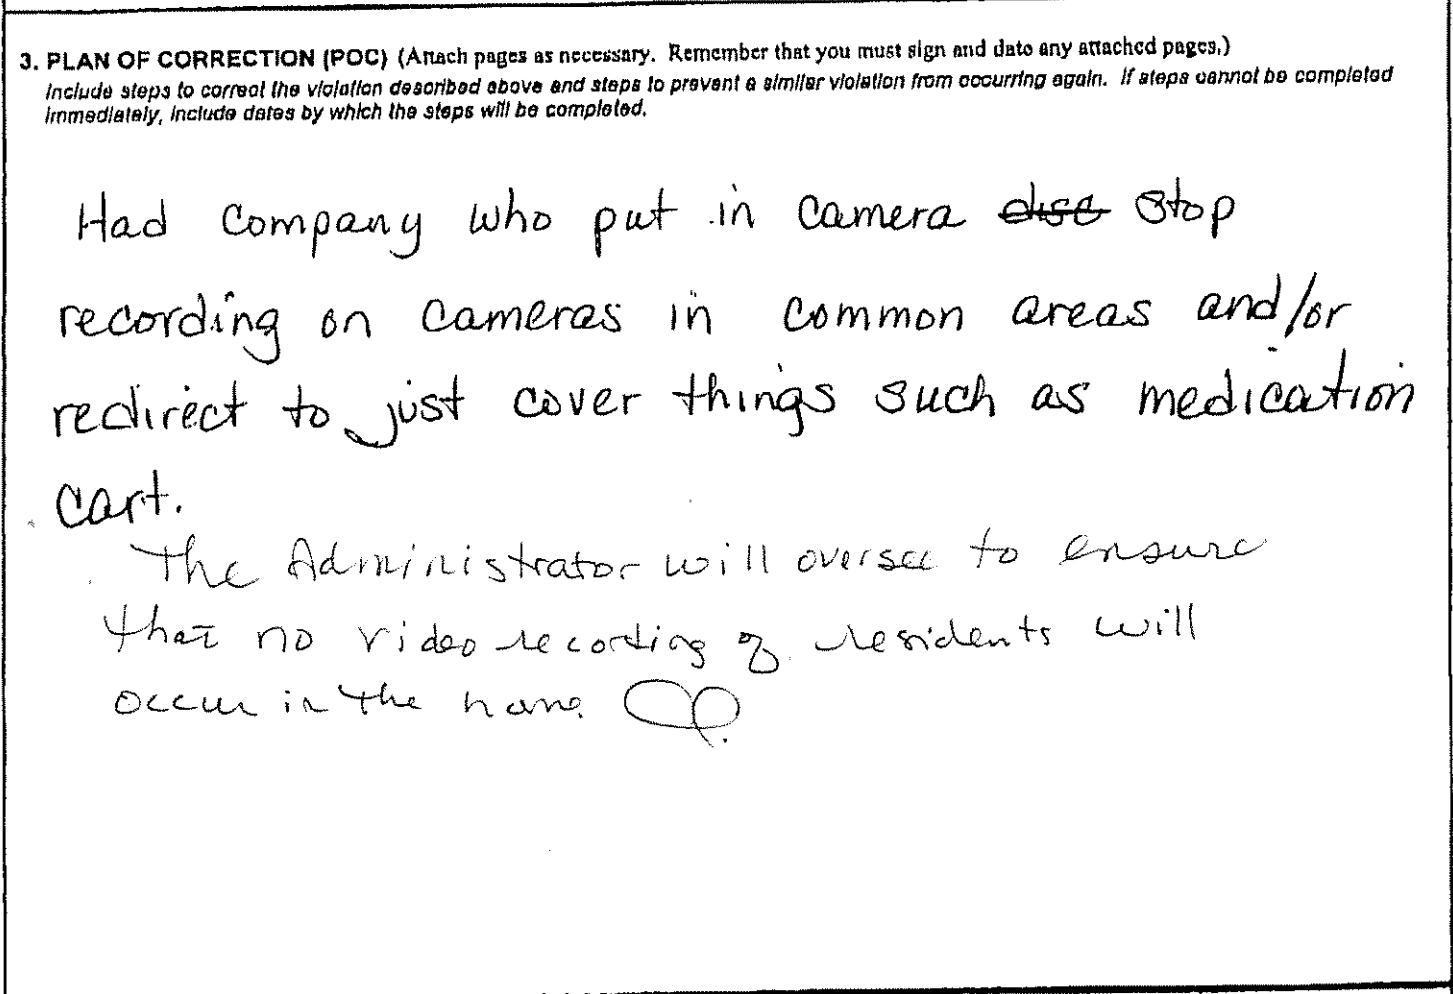 3. PLAN OF CORRECTION (POC) (Attach pages as necessary. Remember that you must sign and date any attached pages.)
Include steps to correct the violation described above and steps to prevent a similar violation from occurring again. If steps cannot be completed
immediately, include dates by which the steps will be completed.
Had Company who put in camera disc stop
recording on cameras in common areas and/or
redirect to just cover things such as medication
cart.
The Administrator will oversee to ensure
that no video recording of residents will
occur in the home.